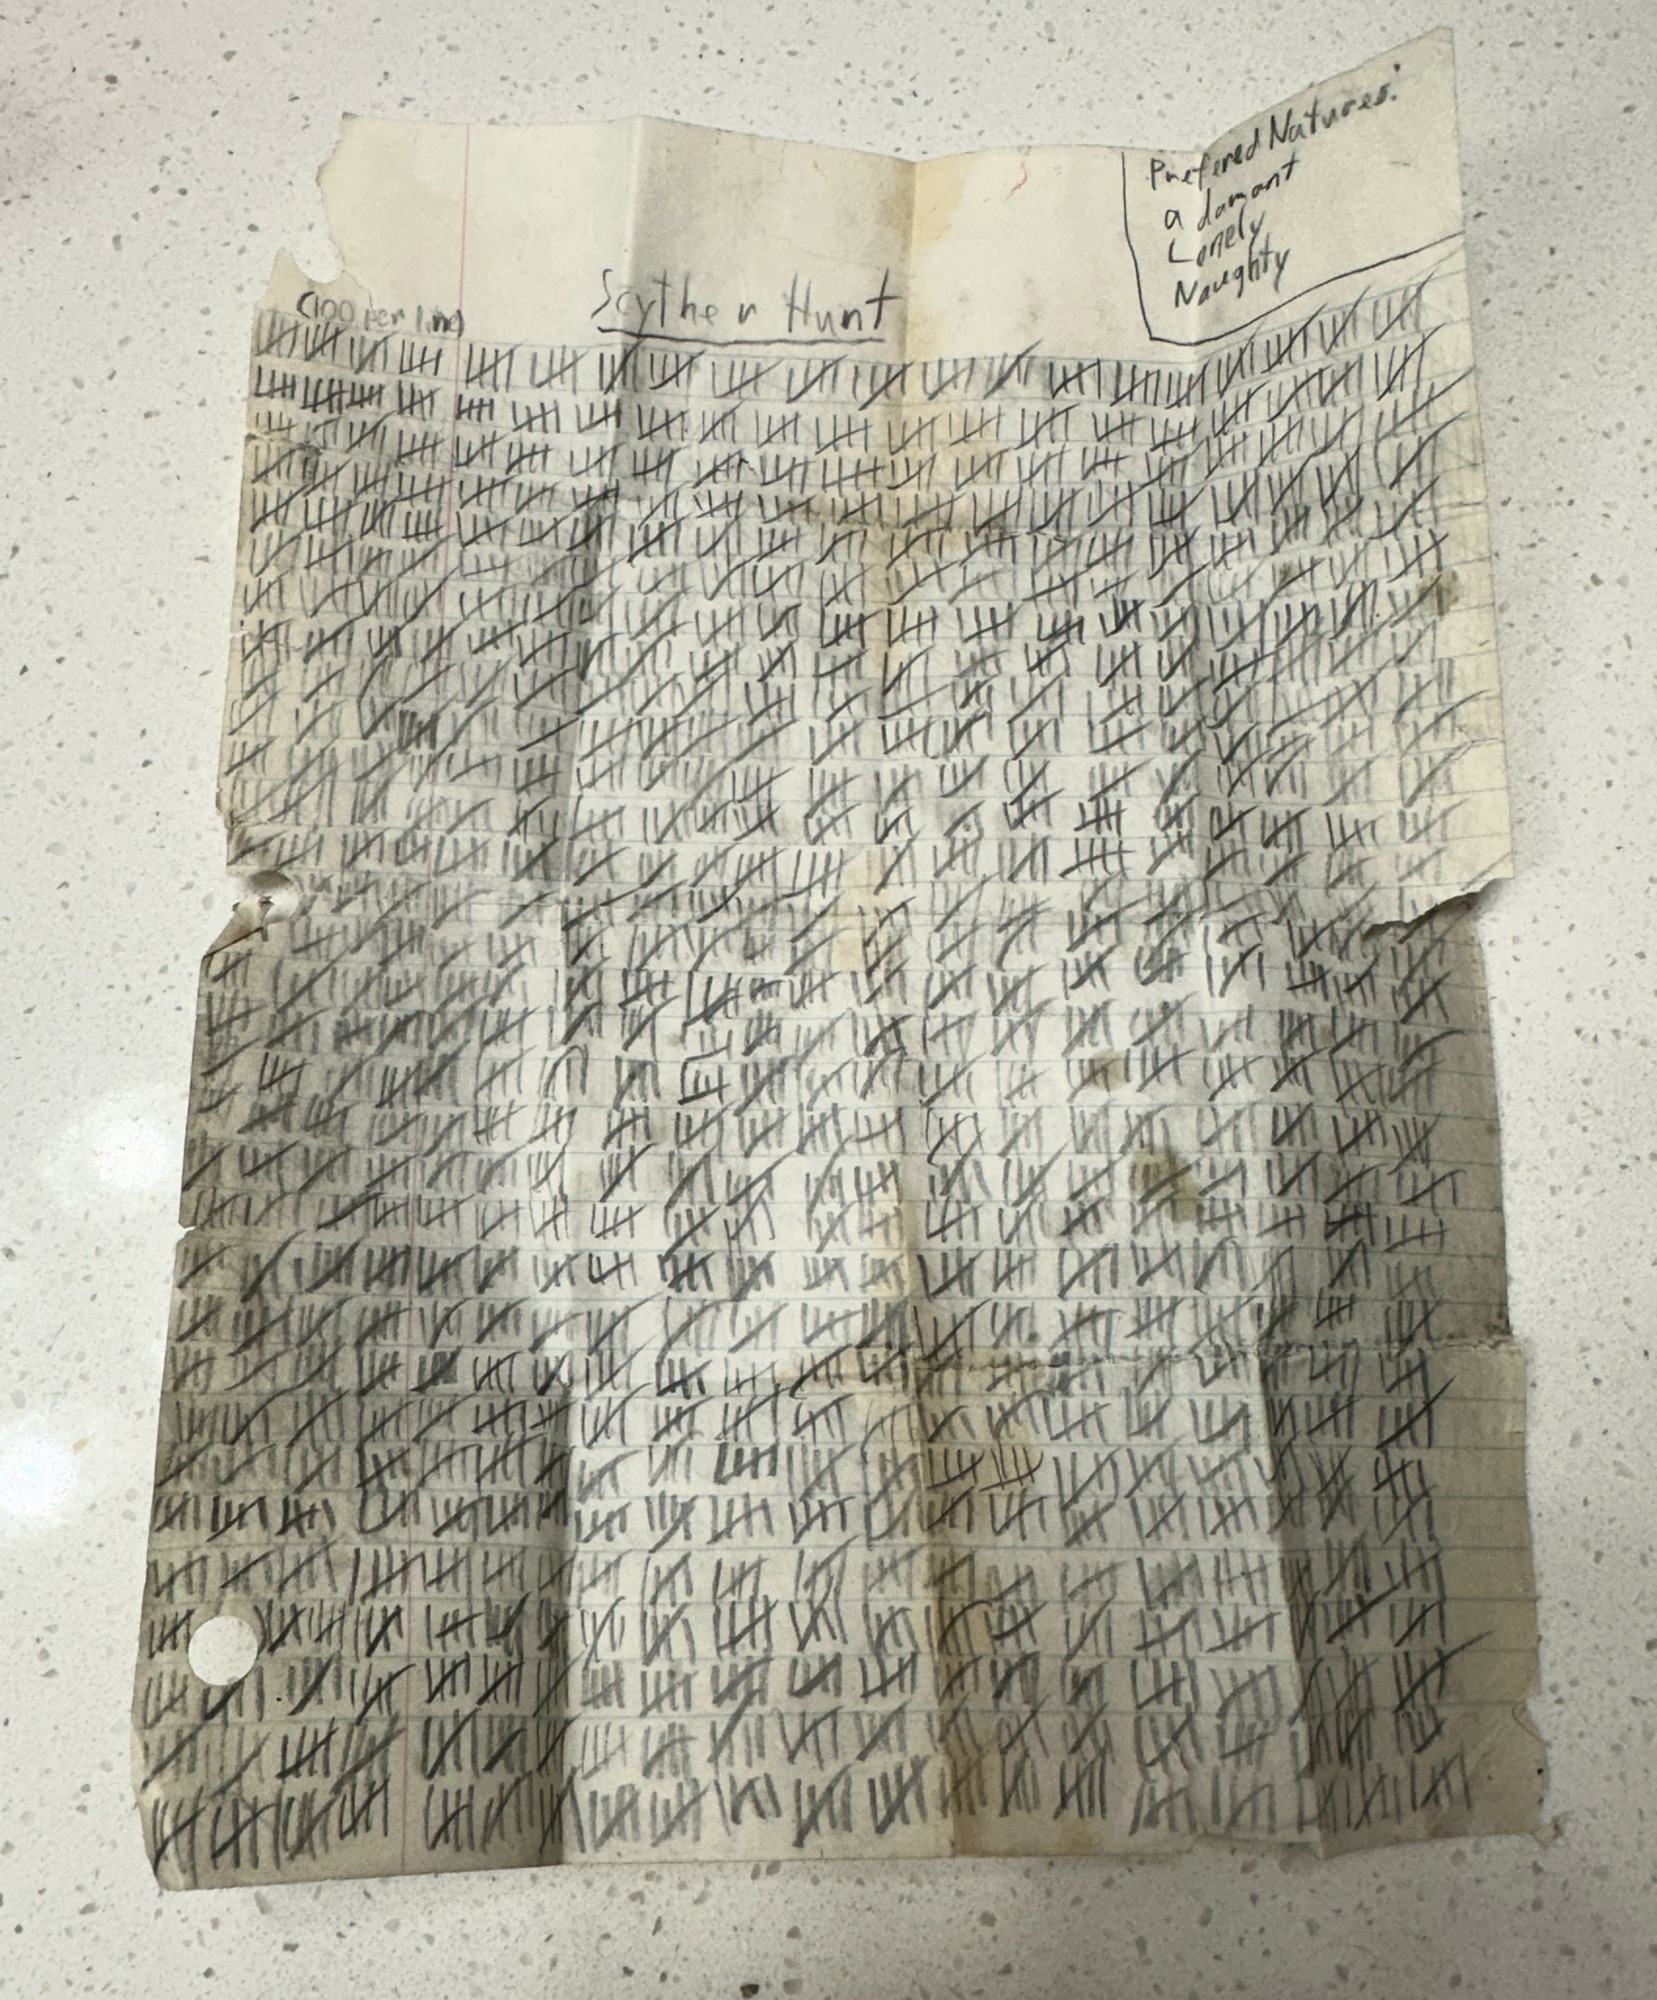 Prefered Natures:
adamant
Lonely
Naughty
(100 per line)
Scyther Hunt